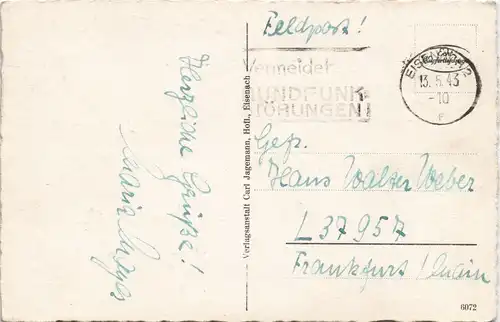 Feldpost!
Vermeidet
RUNDFUNK-
STÖRUNGEN!
EISENACH 2
13.5.43
-10
Herzliche Grüße!
Maria Mayer
Verlagsanstalt Carl Jagemann, Hofl., Eisenach
Gefr.
Hans Walter Weber
L 37957
Frankfurt/Main
6072